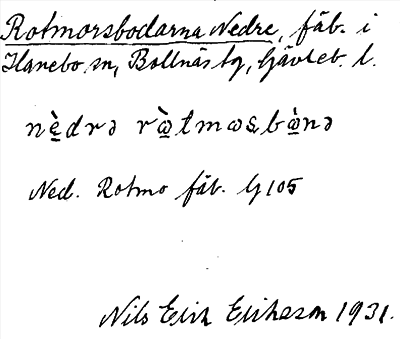 Rotmorsbodarna Nedre, fäb. i
Hanebo sn, Bollnäs tg, Gävleb. l.
nè̱drə rɷ̱̀tmɷsbɷ̱̀nə
Ned. Rotmo fäb. G 105
Nils Erik Erikson 1931.